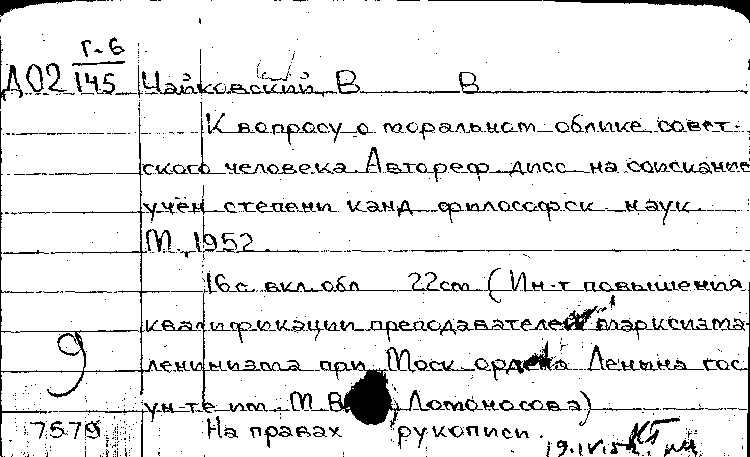 Г-6
Д02 145 Чайковский, В В
К вопросу о моральном облике совет-
ского человека. Автореф. дисс. на соискание
учён. степени канд. философск. наук.
М., 1952.
16с. вкл. обл. 22см (Ин-т повышения
квалификации преподавателей марксизма-
9 ленинизма при Моск. ордена Ленина гос.
ун-те им. М.В. Ломоносова)
7579 На правах рукописи.